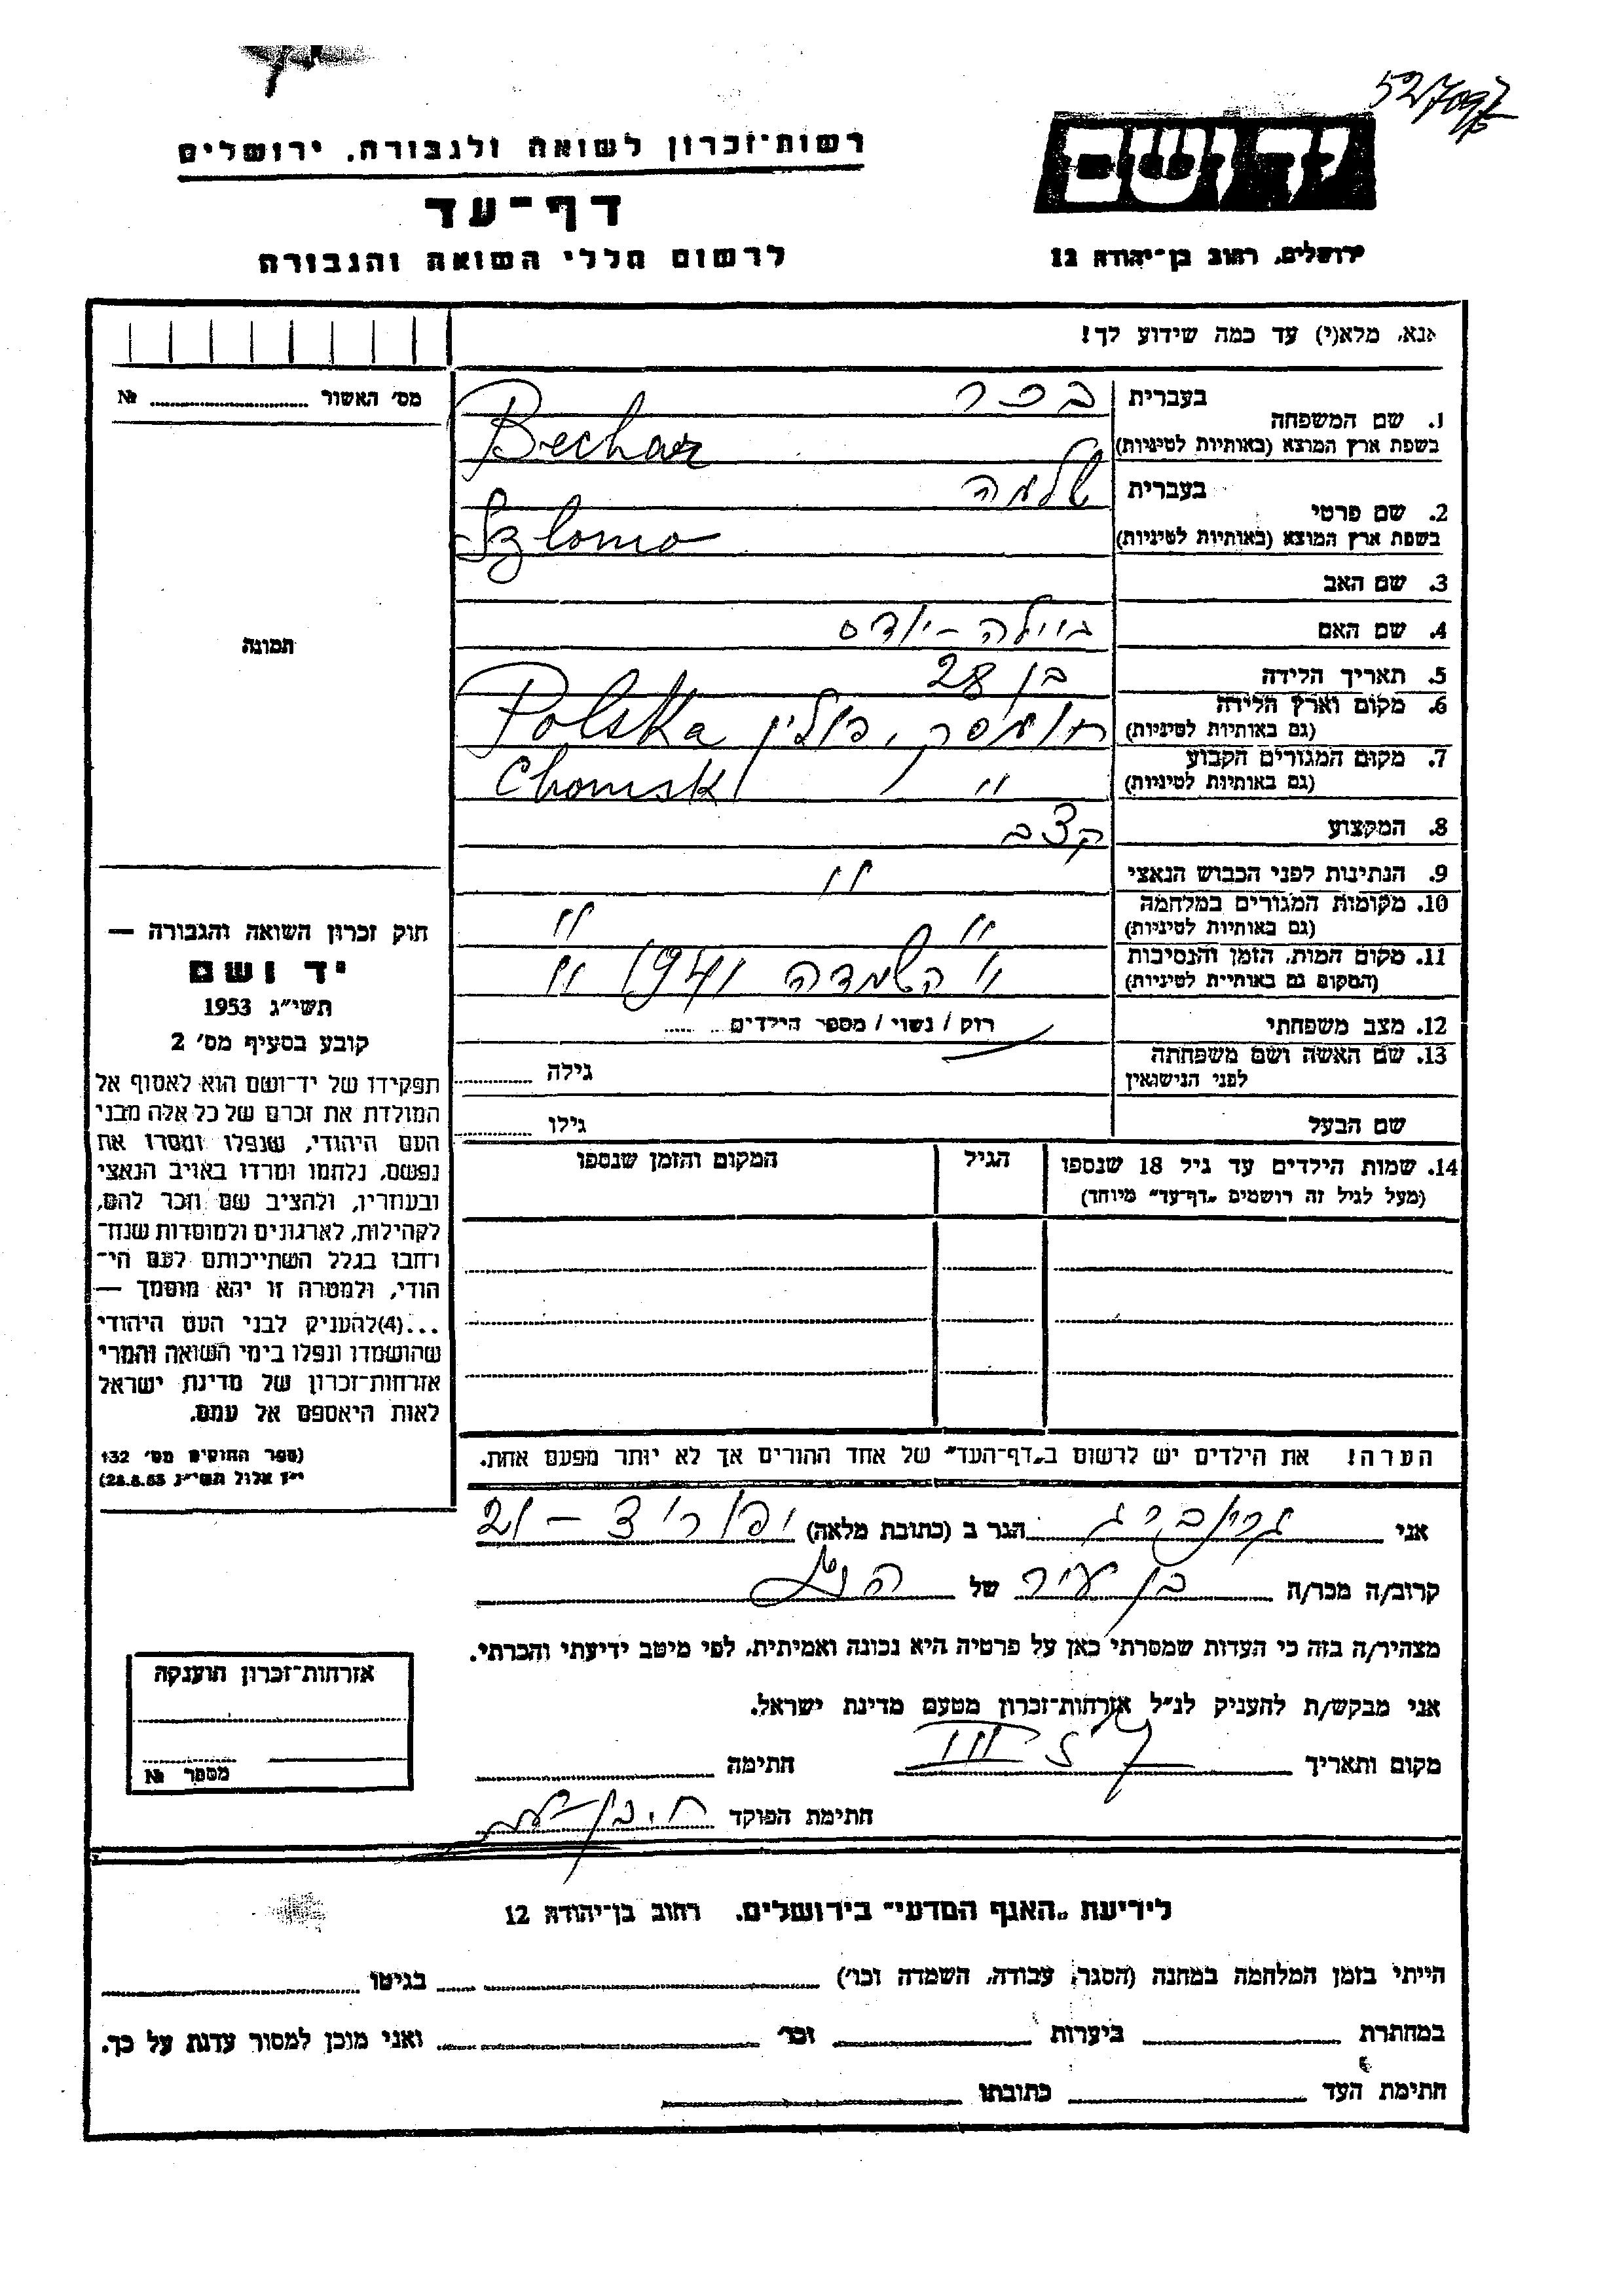 527097
רשות־זכרון לשואה ולגבורה, ירושלים
יד ושם
דף־עד
לרשום חללי השואה והגבורה
ירושלים, רחוב בן־יהודה 12
אנא, מלא(י) עד כמה שידוע לך!
מס׳ האשור № 
1. שם המשפחה
בעברית בכר
בשפת ארץ המוצא (באותיות לטיניות) Bechar
2. שם פרטי
בעברית שלמה
בשפת ארץ המוצא (באותיות לטיניות) Szlomo
3. שם האב
4. שם האם ביילה - יודס
5. תאריך הלידה בן 28
6. מקום וארץ הלידה
(גם באותיות לטיניות) חומסק, פולין Polska
7. מקום המגורים הקבוע
(גם באותיות לטיניות) " Chomsk
8. המקצוע קצב
9. הנתינות לפני הכבוש הנאצי "
10. מקומות המגורים במלחמה
(גם באותיות לטיניות) " "
11. מקום המות, הזמן והנסיבות
(המקום גם באותיות לטיניות) " השמדה 1941 "
12. מצב משפחתי רוק / נשוי / מספר הילדים
13. שם האשה ושם משפחתה
לפני הנישואין גילה
שם הבעל גילו
14. שמות הילדים עד גיל 18 שנספו
(מעל לגיל זה רושמים „דף־עד” מיוחד)
הגיל
המקום והזמן שנספו
תמונה
חוק זכרון השואה והגבורה —
יד ושם
תשי״ג 1953
קובע בסעיף מס׳ 2
תפקידו של יד־ושם הוא לאסוף אל
המולדת את זכרם של כל אלה מבני
העם היהודי, שנפלו ומסרו את
נפשם, נלחמו ומרדו באויב הנאצי
ובעוזריו, ולהציב שם וזכר להם,
לקהילות, לארגונים ולמוסדות שנח־
רחבו בגלל השתייכותם לעם הי־
הודי, ולמטרה זו יהא מוסמך —
...(4)להעניק לבני העם היהודי
שהושמדו ונפלו בימי השואה והמרי
אזרחות־זכרון של מדינת ישראל
לאות היאספם אל עמם.
(ספר החוקים מס׳ 132
י״ז אלול תשי״ג 28.8.53)
הערה! את הילדים יש לרשום ב„דף־העד” של אחד ההורים אך לא יותר מפעם אחת.
אני גרינברג הגר ב (כתובת מלאה) 21 -
קרוב/ה מכר/ה בן עיר של
מצהיר/ה בזה כי העדות שמסרתי כאן על פרטיה היא נכונה ואמיתית, לפי מיטב ידיעתי והכרתי.
אני מבקש/ת להעניק לנ״ל אזרחות־זכרון מטעם מדינת ישראל.
מקום ותאריך חתימה
חתימת הפוקד
אזרחות־זכרון הוענקה
מספר №
לידיעת „האגף המדעי” בירושלים, רחוב בן־יהודה 12
הייתי בזמן המלחמה במחנה (הסגר, עבודה, השמדה וכו׳) בגיטו
במחתרת ביערות וכו׳ ואני מוכן למסור עדות על כך.
חתימת העד כתובתו